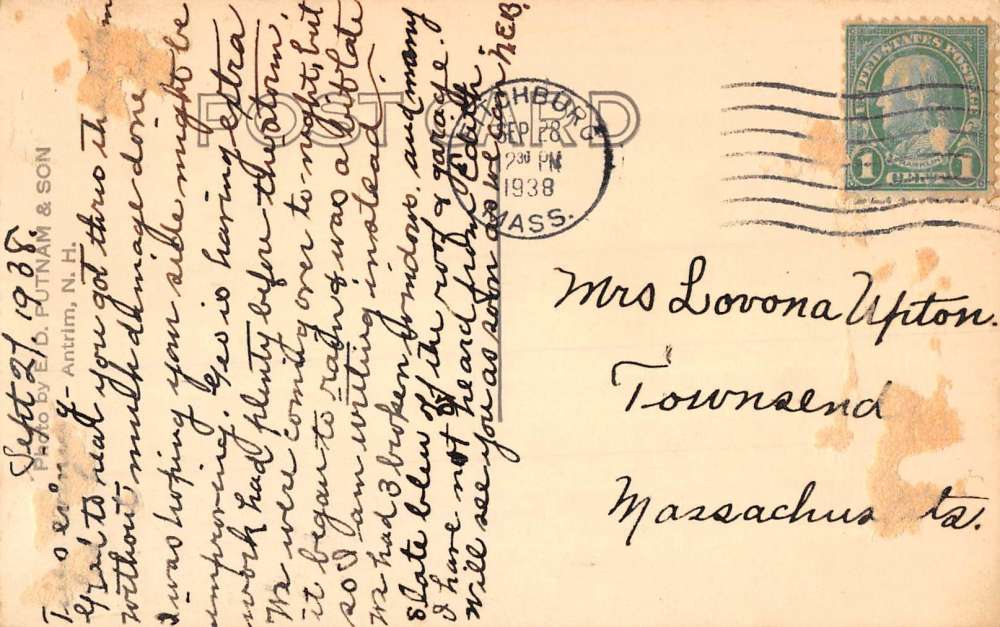 Sept 27, 1938.
Glad to hear you got thro
without much damage done
I was hoping your side might be
improving. Geo is having extra
work had plenty before the storm.
We were coming over to-night, but
it began to rain & was a bit late
so I am writing instead.
We had 3 broken windows and many
slate blew off the roof & garage.
I have not heard from Edith.
Will see you as soon as we can NEB.
Photo by E. D. PUTNAM & SON
Antrim, N. H.
POST CARD
FITCHBURG
SEP 28
2 30 PM
1938
MASS.
UNITED STATES POSTAGE
1 CENT 1
Mrs Lovona Upton.
Townsend
Massachusetts.